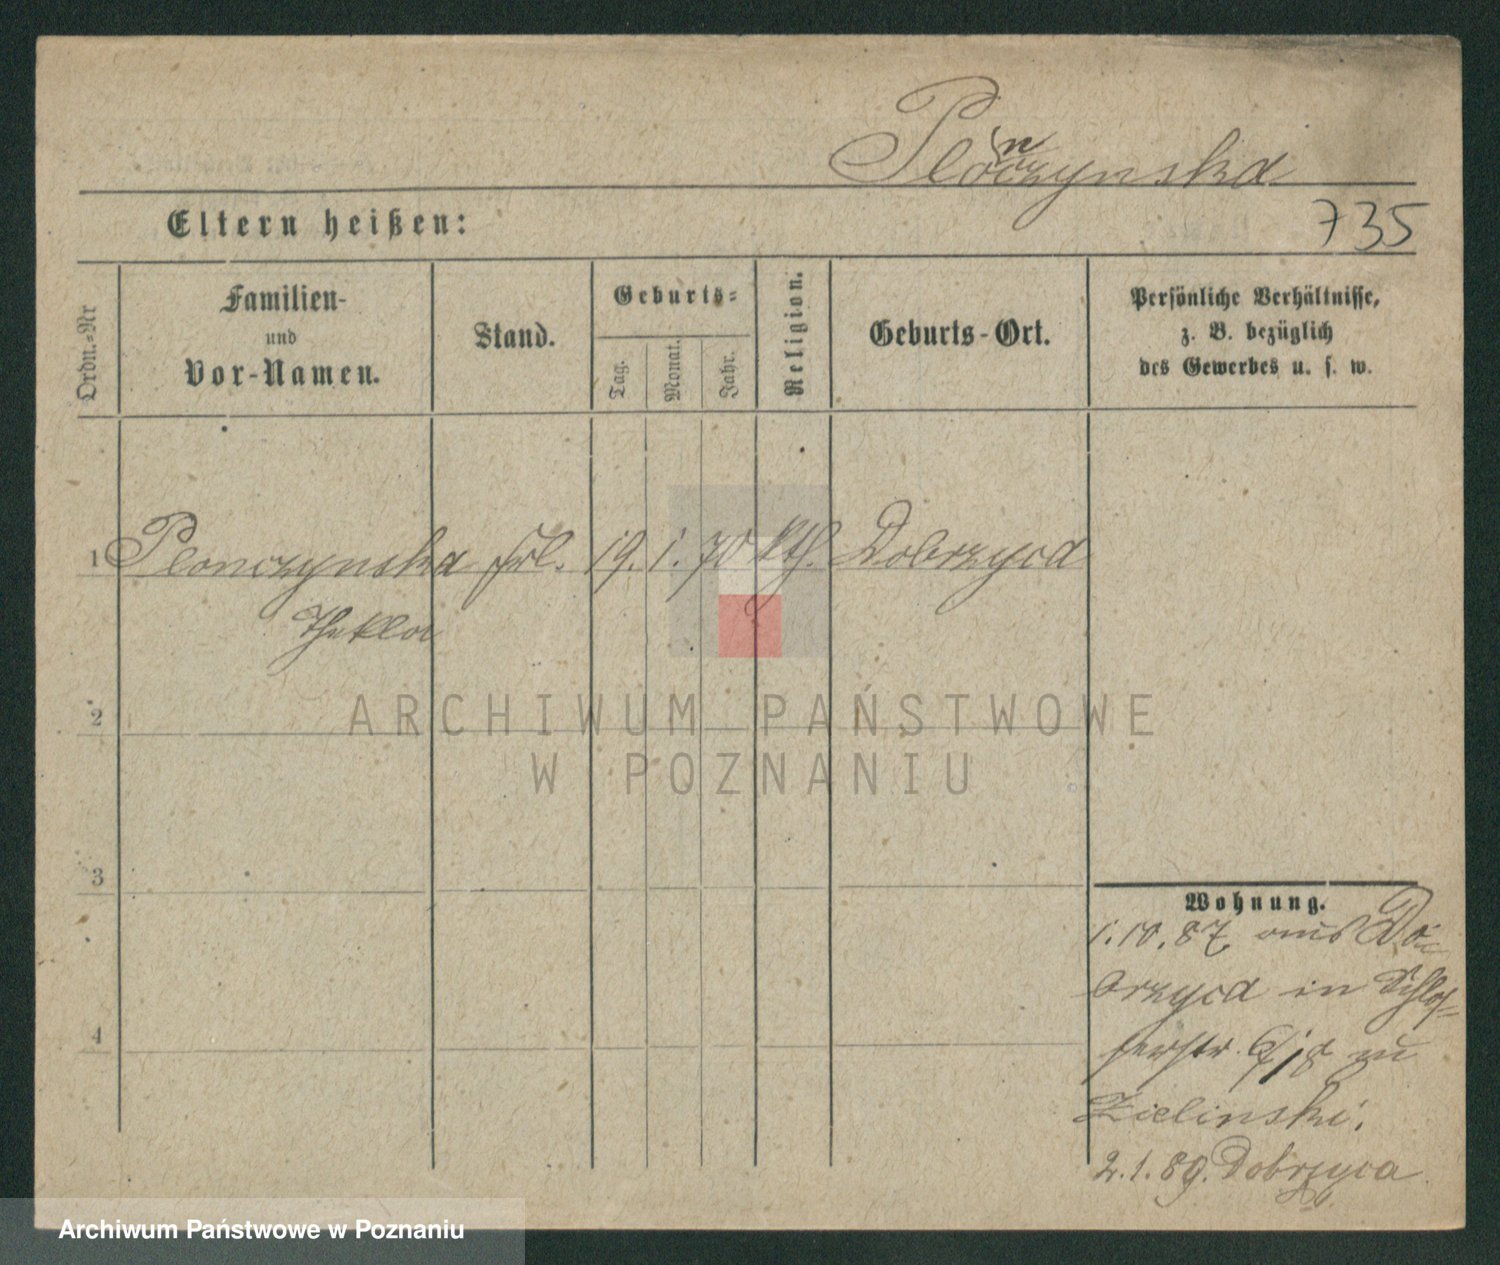 Plonczynska
735
Eltern heißen:
Ordn.-Nr
Familien-
und
Vor-Namen.
Stand.
Geburts-
Tag.
Monat.
Jahr.
Religion.
Geburts-Ort.
Persönliche Verhältnisse,
z. B. bezüglich
des Gewerbes u. s. w.
1 Plonczynska Frl. 19. 1. 70 kth. Dobrzyca
Thekla
2
3
4
Wohnung.
1.10.87. aus Do-
brzyca in Schlos-
serstr. 6/18 zu
Zielinski.
2.1.89. Dobrzyca
ARCHIWUM PAŃSTWOWE
W POZNANIU
Archiwum Państwowe w Poznaniu